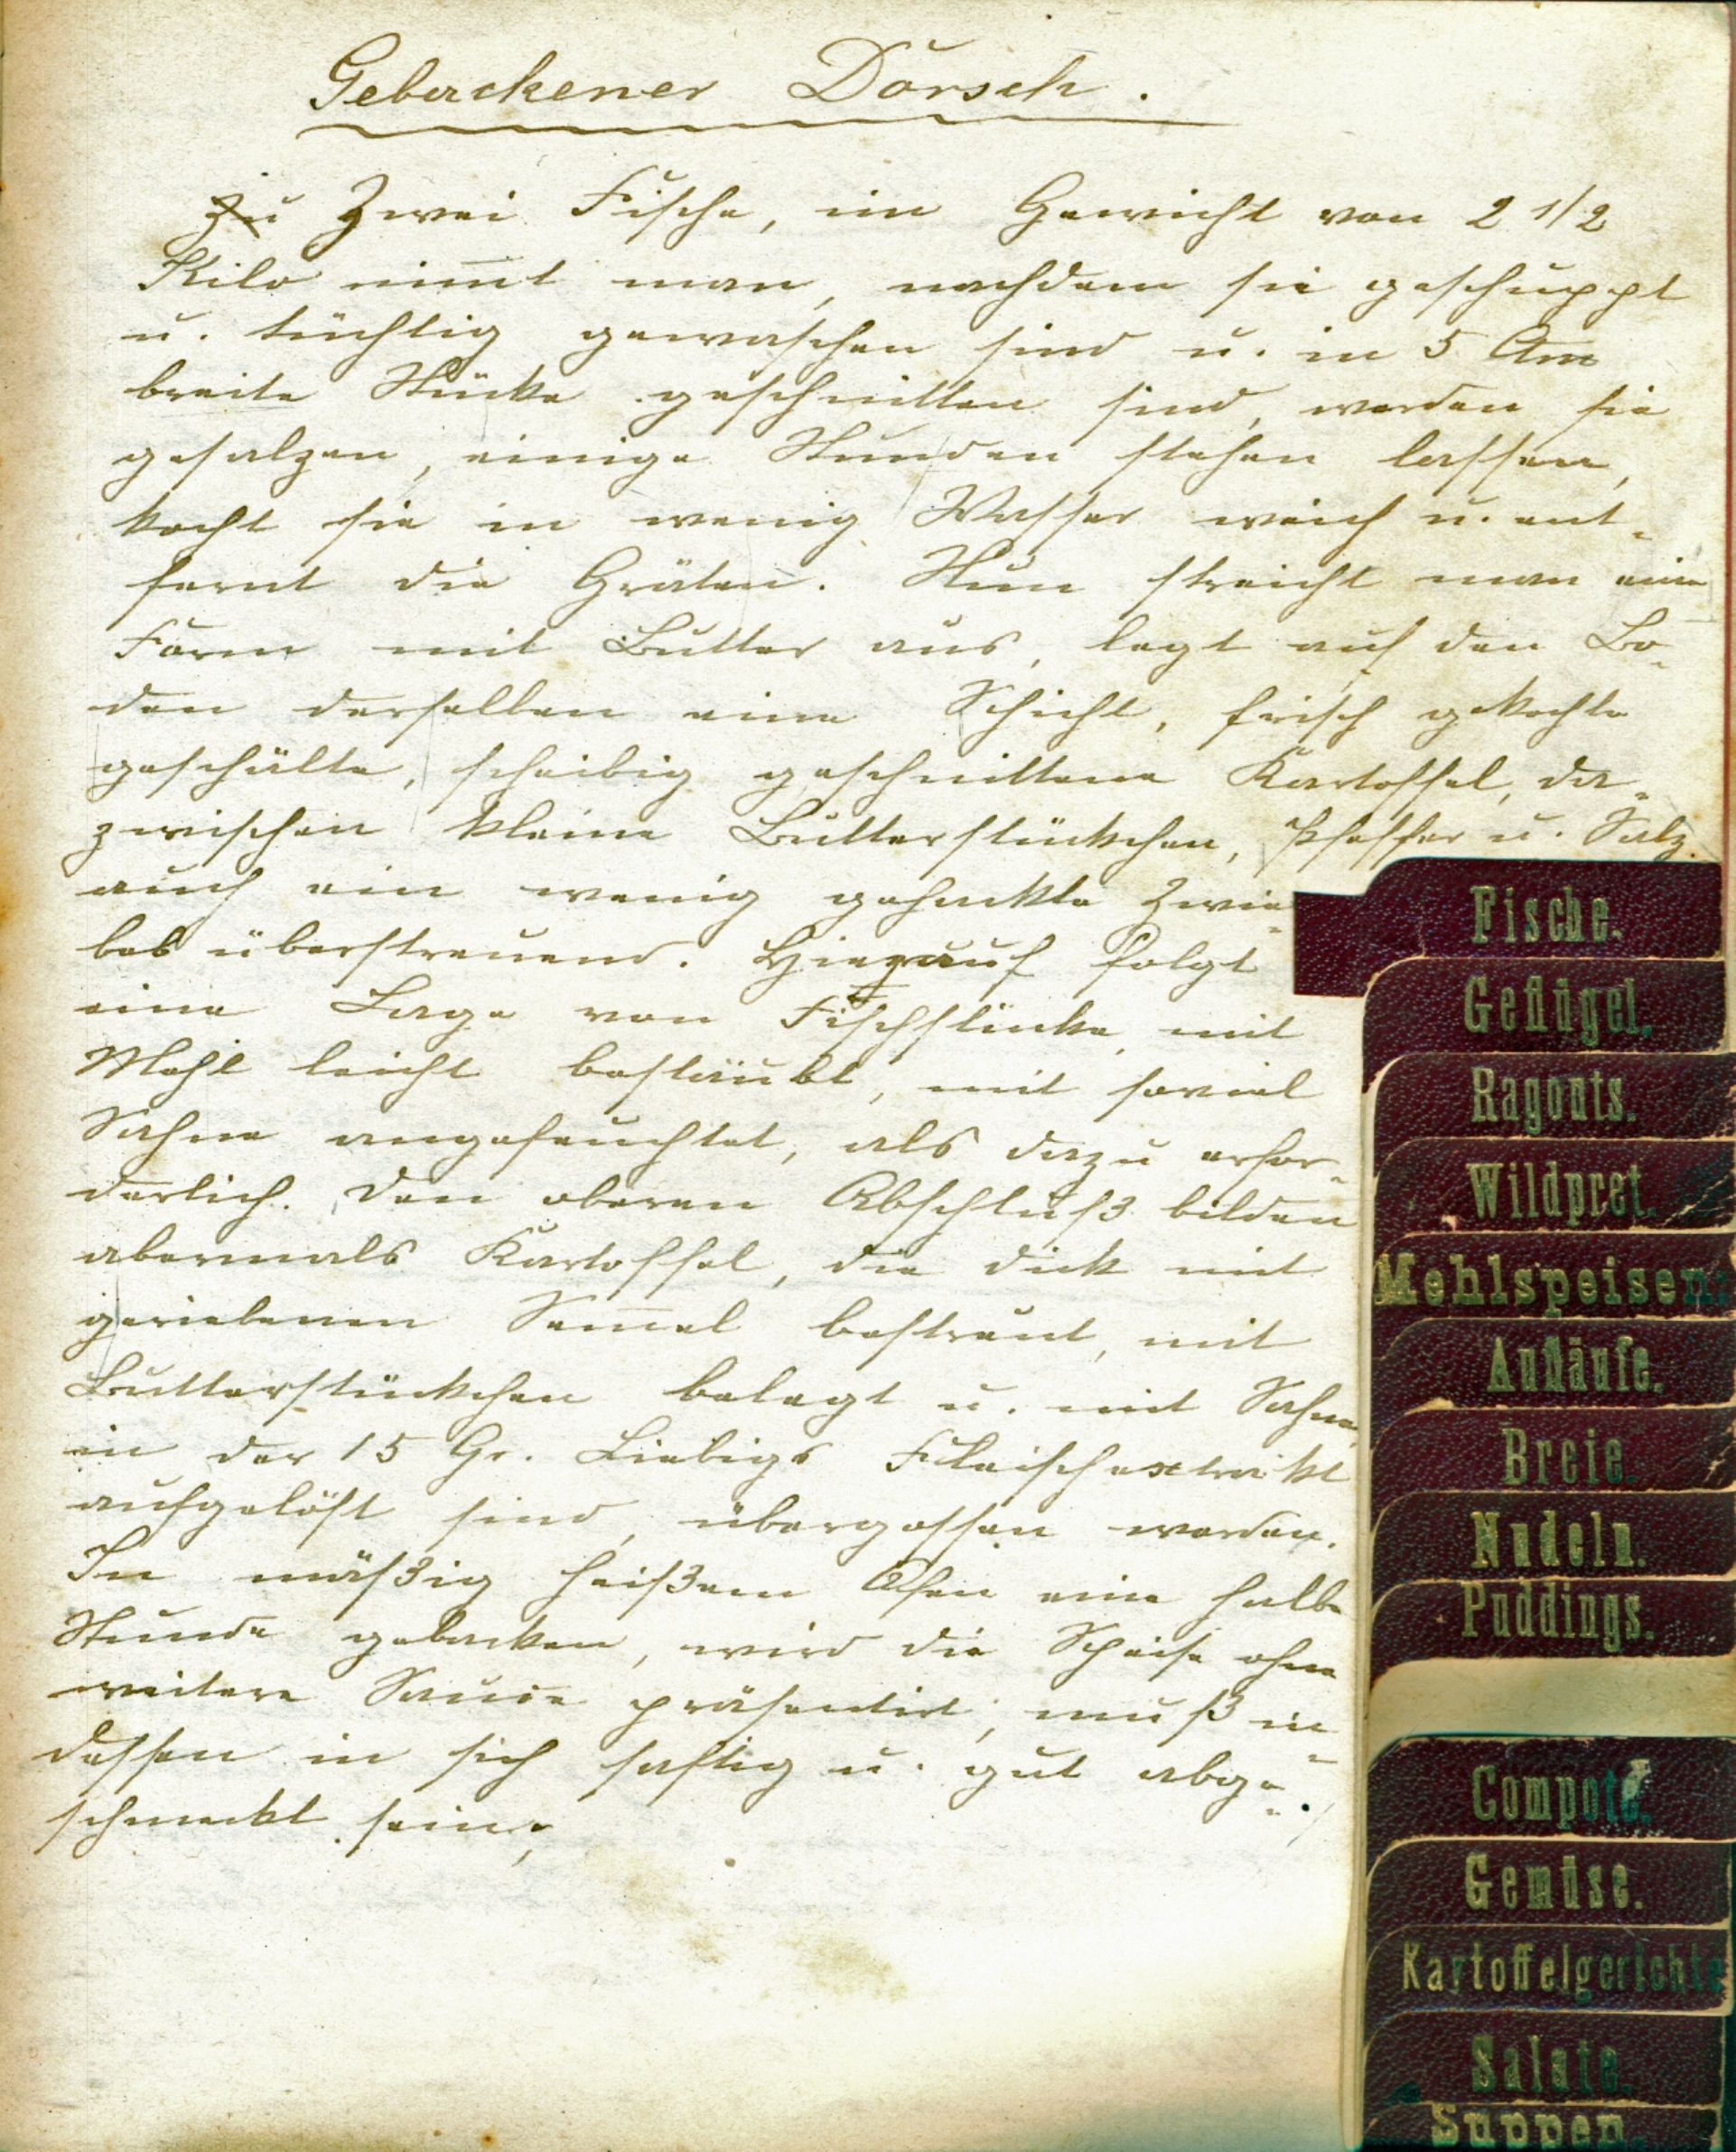 Gebackener Dorsch.
Zu Zwei Fische, im Gewicht von 2 1/2
Kilo nim̄t man, nachdem sie geschuppt
u. tüchtig gewaschen sind u. in 5 Ctm
breite Stücke geschnitten sind, werden sie
gesalzen, einige Stunden stehen lassen,
kocht sie in wenig Wasser weich u. ent-
fernt die Gräten. Nun streicht man eine
Form mit Butter aus, legt auf den Bo-
den derselben eine Schicht, frisch gekochte
geschälte, scheibig geschnittene Kartoffel, da-
zwischen kleine Butterstückchen, Pfeffer u. Salz.
auch ein wenig gehackte Zwie-
bel überstreuend. Hierauf folgt
eine Lage von Fischstücke, mit
Mehl leicht bestäubt, mit soviel
Sahne angefeuchtet, als dazu erfor-
derlich. Den oberen Abschluß bilden
abermals Kartoffel, die dick mit
geriebenen Sem̄el bestreut, mit
Butterstückchen belegt u. mit Sahne,
in der 15 Gr. Liebigs Fleischextrakt
aufgelöst sind, übergossen werden.
In mäßig heißem Ofen eine halbe
Stunde gebacken, wird die Speise ohne
weitere Sauce präsentirt, muß in-
dessen in sich saftig u. gut abge-
schmeckt sein,
Fische.
Geflügel.
Ragouts.
Wildpret.
Mehlspeisen.
Aufläufe.
Breie.
Nudeln.
Puddings.
Compote.
Gemüse.
Kartoffelgerichte
Salate.
Suppen.